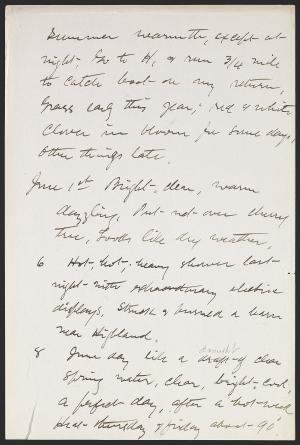 Summer warmth, except at
night; Go to H, & run 3/4 mile
to catch boat on my return,
Grass early this year; red & white
Clover in bloom for some days,
other things late.
June 1st Bright, clear, warm
dazzling. Put net over cherry
tree, Looks like dry weather,
6 Hot, hot; heavy shower last
night with extraordinary electric
displays, Struck & burned a barn
near Highland.
8 June day like a draft of clear
Spring water, clear, bright, cool,
a perfect day, after a hot week
Heat Thursday & friday about 90°